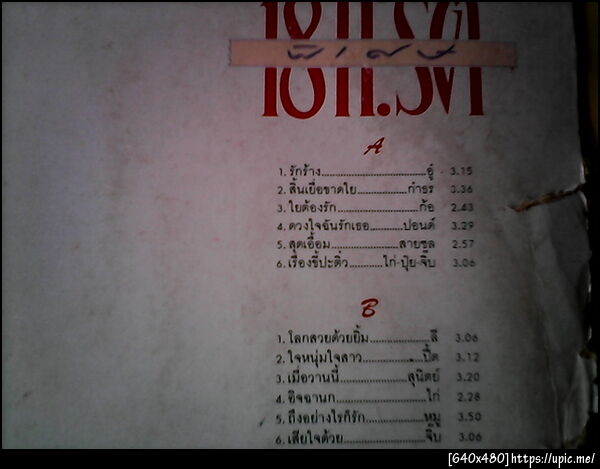 18 ก.ะรัต
พิเศษ
A
1. รักร้าง..........อู๋ 3.15
2. สิ้นเยื่อขาดใย..........กำธร 3.36
3. ใยต้องรัก..........ก้อ 2.43
4. ดวงใจฉันรักเธอ..........ปอนด์ 3.29
5. สุดเอื้อม..........สายชล 2.57
6. เรื่องขี้ปะติ๋ว..........ไก่-ปุ้ย-จิ๊บ 3.06
B
1. โลกสวยด้วยยิ้ม..........ลี 3.06
2. ใจหนุ่มใจสาว..........ปี๊ด 3.12
3. เมื่อวานนี้..........สุนิตย์ 3.20
4. อิจฉานก..........ไก่ 2.28
5. ถึงอย่างไรก็รัก..........หมู 3.50
6. เสียใจด้วย..........จิ๊บ 3.06
[640x480]https://upic.me/